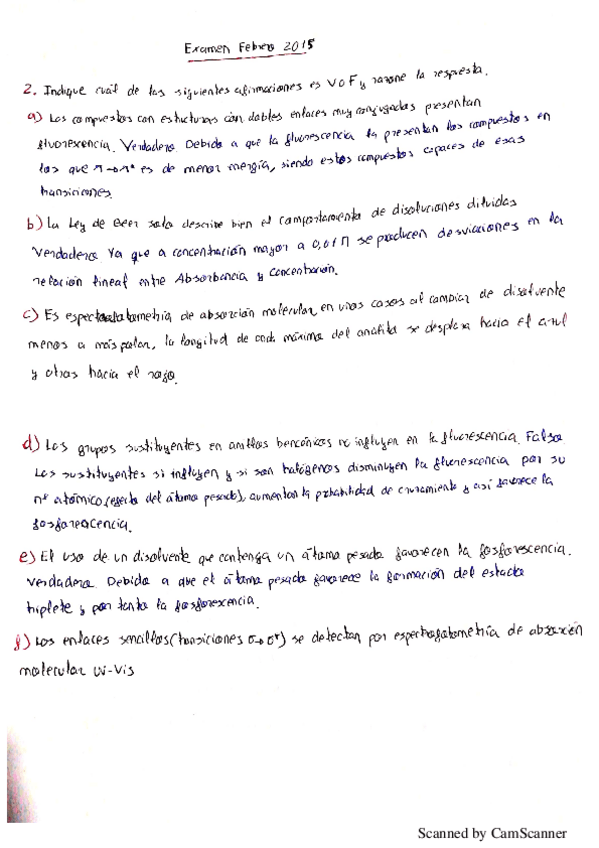 Examen Febrero 2015
2. Indique cuál de las siguientes afirmaciones es V o F y razone la respuesta.
a) Los compuestos con estucturas con dobles enlaces muy conjugadas presentan
fluorescencia. Verdadero. Debido a que la fluorescencia la presentan los compuestos en
los que π→π* es de menor energía, siendo estos compuestos capaces de esas
transiciones.
b) La Ley de Beer solo describe bien el comportamiento de disoluciones diluidas
Verdadera Ya que a concentración mayor a 0,01 M se producen desviaciones en la
relación lineal entre Absorbancia y concentración.
c) Es espectrofotometría de absorción molecular, en unos casos al cambiar de disolvente
menos a más polar, la longitud de onda máxima del analito se desplaza hacia el azul
y otras hacia el rojo.
d) Los grupos sustituyentes en anillos bencénicos no influyen en la fluorescencia. Falso
Los sustituyentes si influyen y si son halógenos disminuyen la fluorescencia por su
nº atómico (efecto del átomo pesado), aumentan la probabilidad de cruzamiento y así favorece la
fosforescencia.
e) El uso de un disolvente que contenga un átomo pesado favorecen la fosforescencia.
Verdadera Debido a que el átomo pesado favorece la formación del estado
triplete y por tanto la fosforescencia.
f) Los enlaces sencillos (transiciones σ→σ*) se detectan por espectrofotometría de absorción
molecular UV-Vis
Scanned by CamScanner